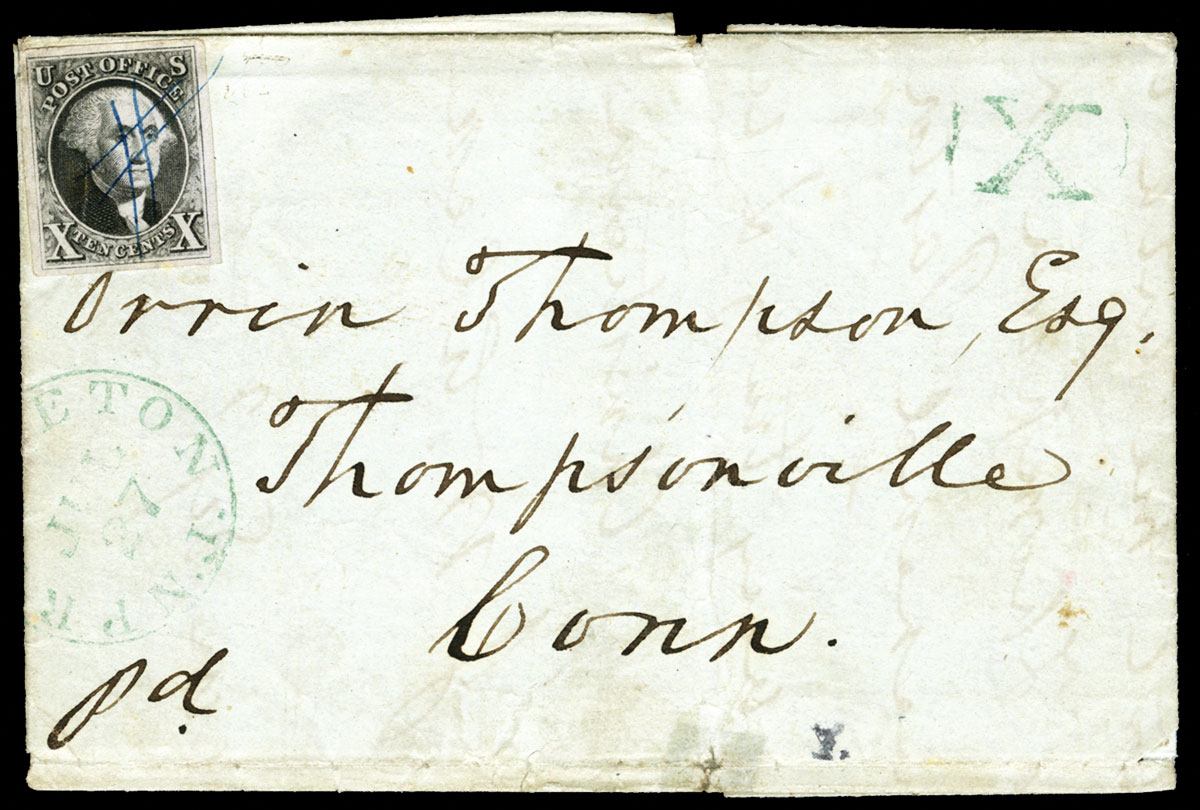 U S
POST OFFICE
X TEN CENTS X
X
Orrin Thompson, Esq.
Thompsonville
Conn.
ETON
27
pd.